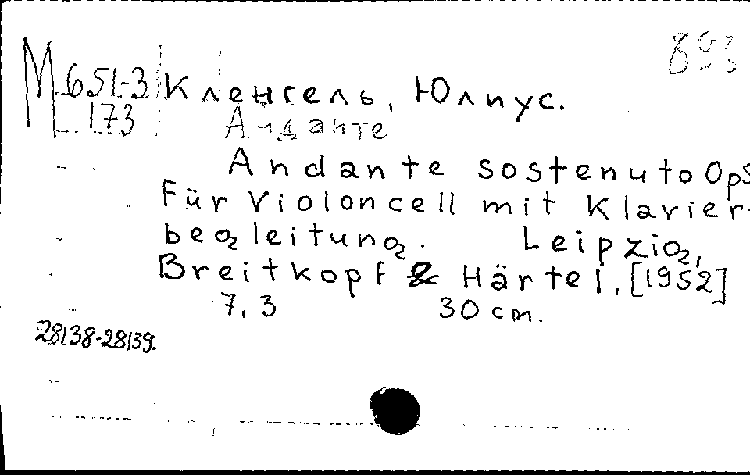 М 651-3 Кленгель, Юлиус.
173 Анданте
Andante sostenuto Op5
Für Violoncell mit Klavier-
begleitung. Leipzig,
Breitkopf & Härtel, [1952]
7, 3 30 cm.
28138-28139.